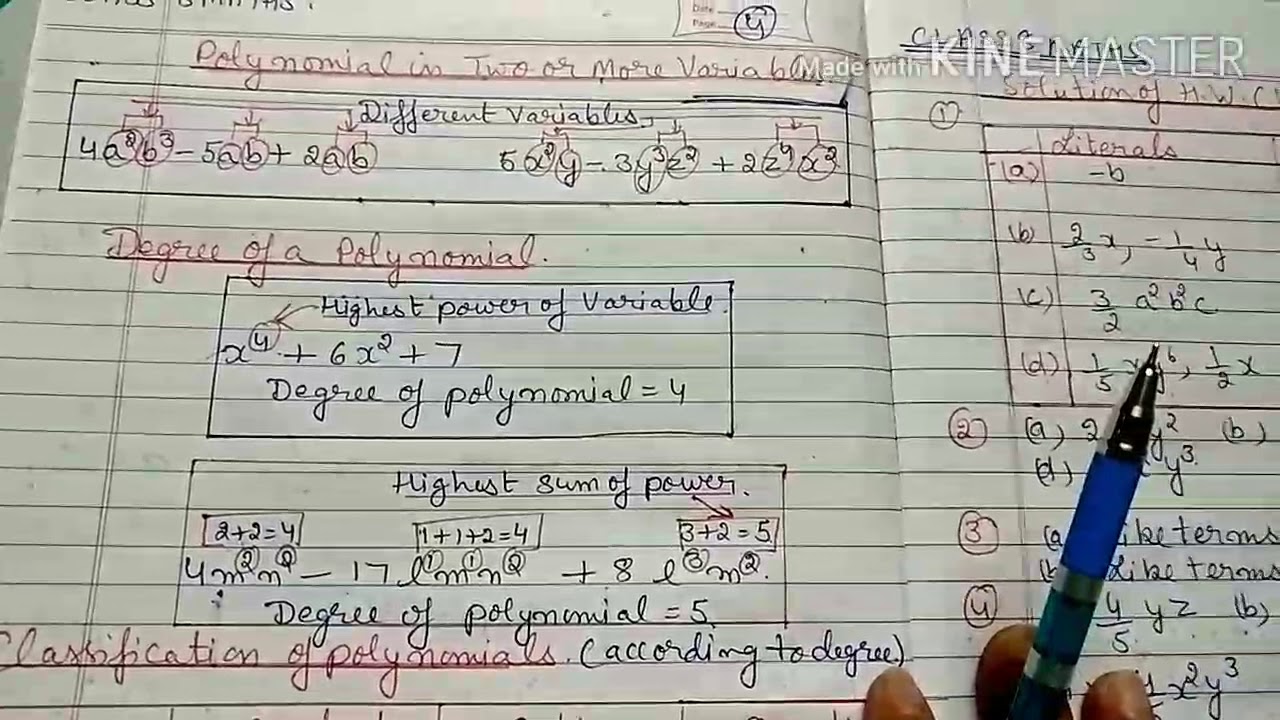 Date
Page 4
Polynomial in Two or More Variables
Different Variables
4a²b³ - 5ab + 2ab
5x²y - 3y³z² + 2z⁴x²
Degree of a Polynomial.
Highest power of Variable.
x⁴ + 6x² + 7
Degree of polynomial = 4
Highest sum of power.
2+2=4
1+1+2=4
3+2=5
4m²n² - 17l¹m¹n² + 8l³m².
Degree of polynomial = 5.
Classification of polynomials. (according to degree)
Made with KINEMASTER
Solution of H.W.
①
Literals
(a) -b
(b) 2/3 x, -1/4 y
(c) 3/2 a²b²c
(d) 1/5, 1/2 x
② (a) 2 y² (b)
(d) y³
③
like terms
④ 4/5 yz (b)
x²y³